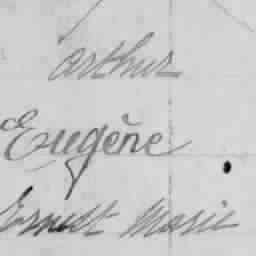 arthur
Eugène
Ernest Marie